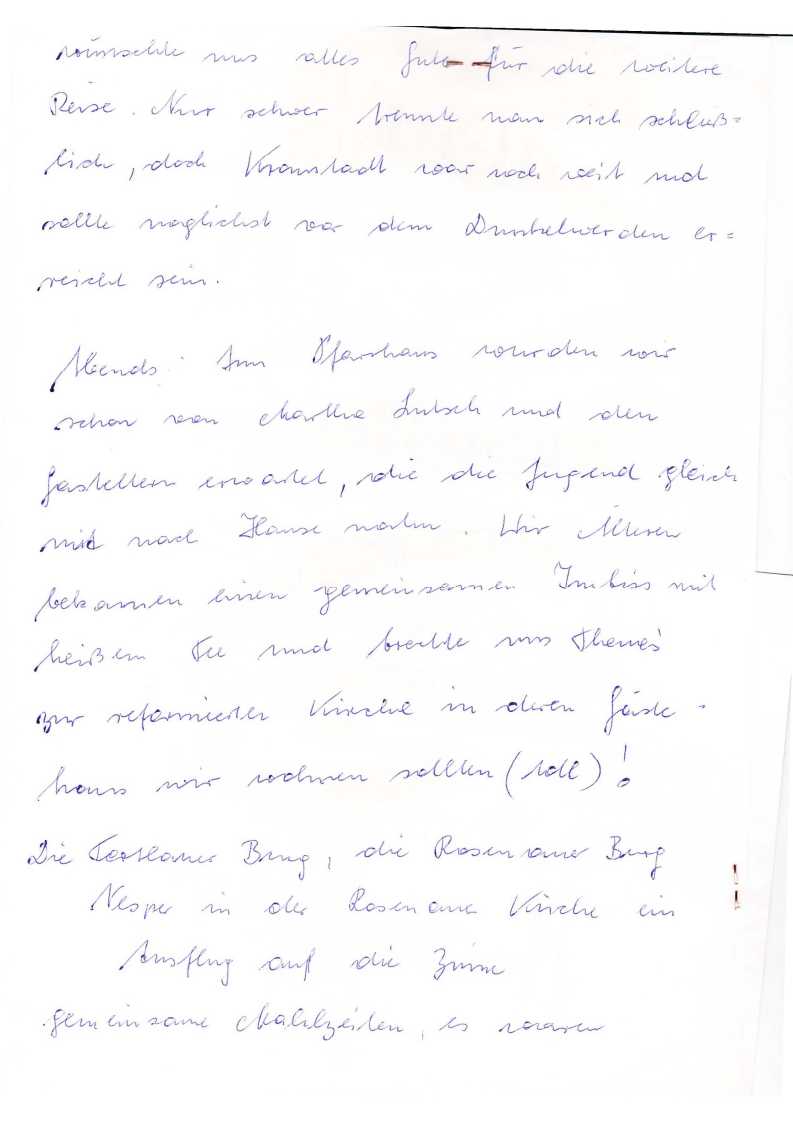 wünschte uns alles Gute für die weitere
Reise. Nur schwer trennte man sich schließ=
lich, doch Kronstadt war noch weit und
sollte möglichst vor dem Dunkelwerden er=
reicht sein.
Abends: Im Pfarrhaus wurden wir
schon von Martha und den
Gasteltern erwartet, die die Jugend gleich
mit nach Hause nahm. Wir Älteren
bekamen einen gemeinsamen Imbiss mit
heißem Tee und brachte uns Thomas
zur reformierten Kirche in deren Gäste-
haus wir wohnen sollten (toll)!
Die Tartlauer Burg, die Rosenauer Burg
Vesper in der Rosenauer Kirche ein
Ausflug auf die Zinne
gemeinsame Mahlzeiten, es waren